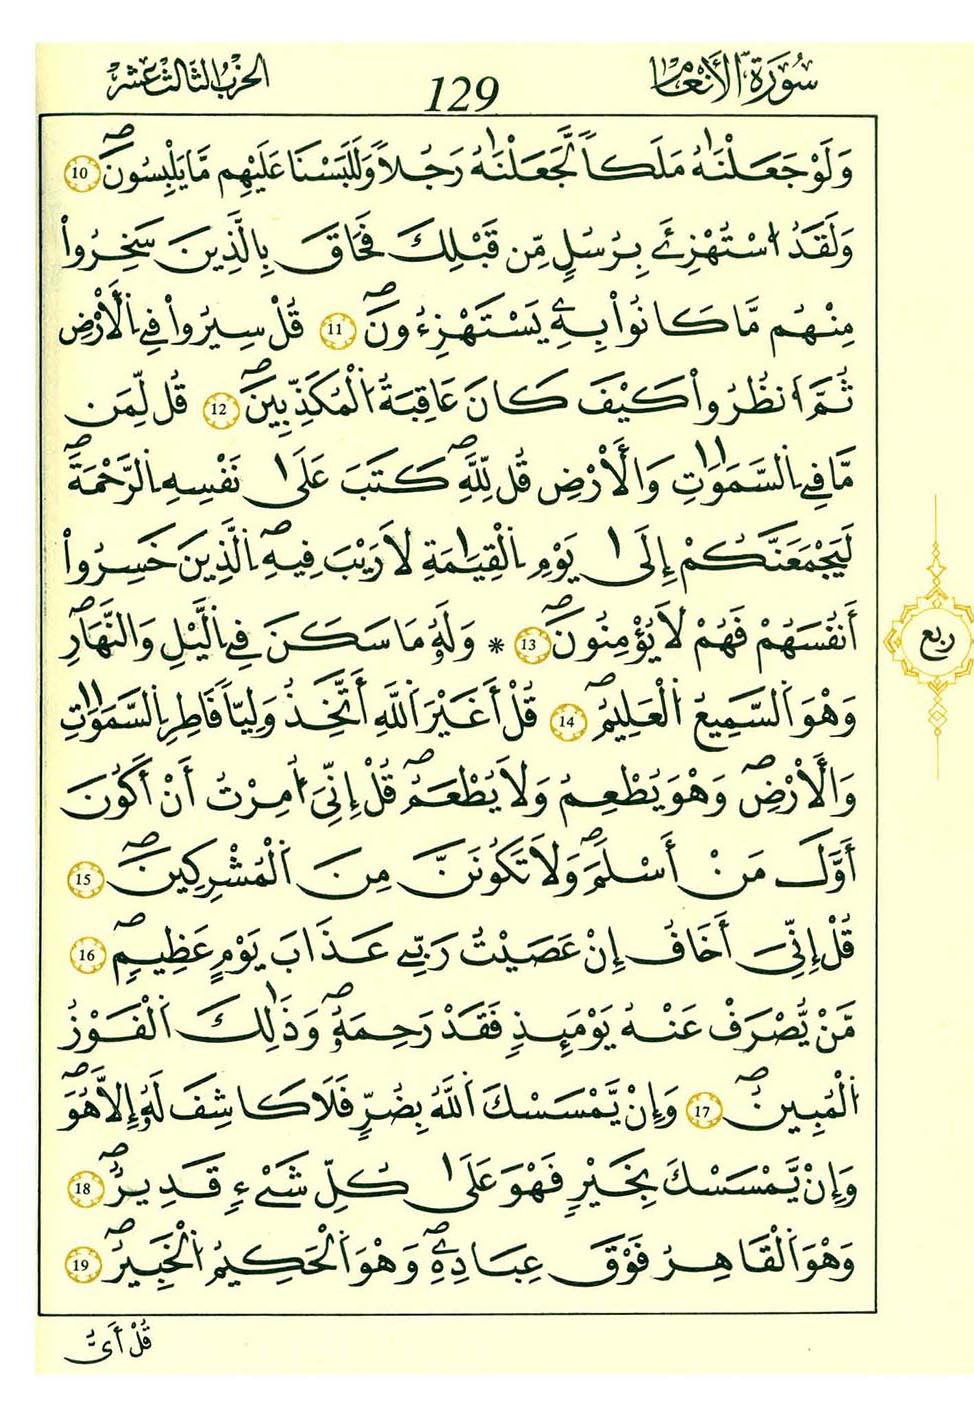 سُورَةُ الأَنْعَامِ
129
الحزب الثالث عشر
وَلَوْ جَعَلْنَٰهُ مَلَكاٗ لَّجَعَلْنَٰهُ رَجُلاٗ وَلَلَبَسْنَا عَلَيْهِم مَّا يَلْبِسُونَۖ 10
وَلَقَدُ اُسْتُهْزِئَ بِرُسُلٖ مِّن قَبْلِكَ فَحَاقَ بِالَّذِينَ سَخِرُواْ
مِنْهُم مَّا كَانُواْ بِهِۦ يَسْتَهْزِءُونَۖ 11 قُلْ سِيرُواْ فِے اِلَارْضِ
ثُمَّ اَنظُرُواْ كَيْفَ كَانَ عَٰقِبَةُ اُلْمُكَذِّبِينَۖ 12 قُل لِّمَن
مَّا فِے اِلسَّمَٰوَٰتِ وَالَارْضِ قُل لِّلهِۖ كَتَبَ عَلَىٰ نَفْسِهِ اِلرَّحْمَةَۖ
لَيَجْمَعَنَّكُمْ إِلَىٰ يَوْمِ اِلْقِيَٰمَةِ لَا رَيْبَ فِيهِۖ اِلذِينَ خَسِرُواْ
أَنفُسَهُمْ فَهُمْ لَا يُومِنُونَۖ 13 * وَلَهُۥ مَا سَكَنَ فِے اِليْلِ وَالنَّهارِۖ
وَهُوَ اَلسَّمِيعُ اُلْعَلِيمُۖ 14 قُلَ اَغَيْرَ اَللَّهِ أَتَّخِذُ وَلِيّاٗ فَاطِرِ اِلسَّمَٰوَٰتِ
وَالَارْضِۖ وَهُوَ يُطْعِمُ وَلَا يُطْعَمُۖ قُلِ اِنِّيَ أُمِرْتُ أَنَ اَكُونَ
أَوَّلَ مَنَ اَسْلَمَۖ وَلَا تَكُونَنَّ مِنَ اَلْمُشْرِكِينَۖ 15
قُلِ اِنِّيَ أَخَافُ إِنْ عَصَيْتُ رَبِّے عَذَابَ يَوْمٍ عَظِيمٖۖ 16
مَّنْ يُّصْرَفْ عَنْهُ يَوْمَئِذٖ فَقَدْ رَحِمَهُۥۖ وَذَٰلِكَ اَلْفَوْزُ
اُلْمُبِينُۖ 17 وَإِنْ يَّمْسَسْكَ اَللَّهُ بِضُرّٖ فَلَا كَاشِفَ لَهُۥ إِلَّا هُوَۖ
وَإِنْ يَّمْسَسْكَ بِخَيْرٖ فَهُوَ عَلَىٰ كُلِّ شَےْءٖ قَدِيرٞۖ 18
وَهُوَ اَلْقَاهِرُ فَوْقَ عِبَادِهِۦۖ وَهُوَ اَلْحَكِيمُ اُلْخَبِيرُۖ 19
قُلَ اَيُّ
ربع